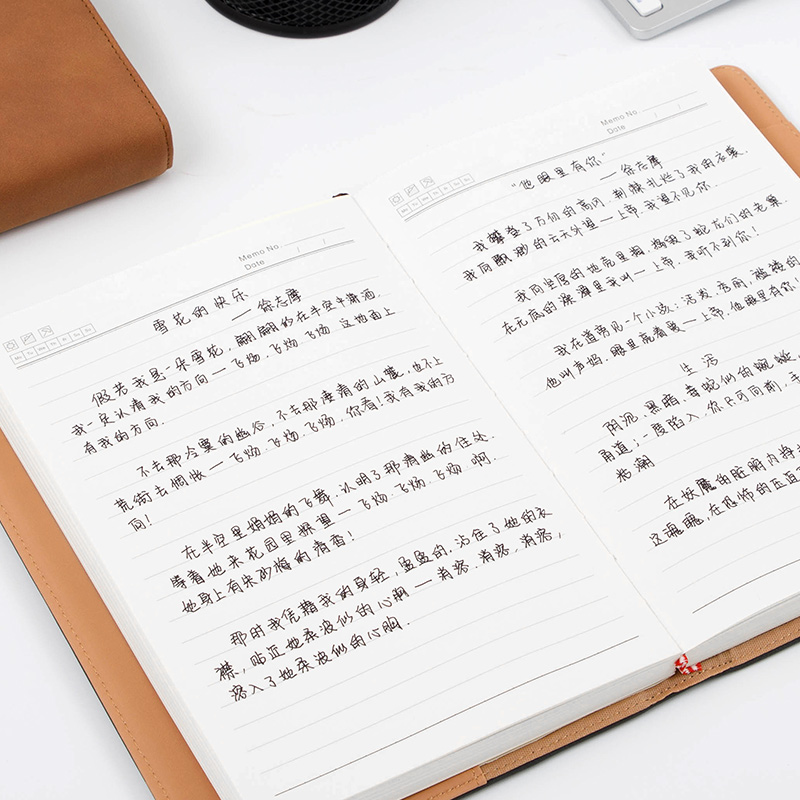 Memo No.
Date / /
雪花的快乐
—徐志摩
假若我是一朵雪花，翩翩的在半空里潇洒.
我一定认清我的方向—飞扬.飞扬.飞扬.这地面上
有我的方向.
不去那冷寞的幽谷，不去那凄清的山麓，也不上
荒街去惆怅—飞扬.飞扬.飞扬，你看！我有我的方
向！
在半空里娟娟的飞舞.认明了那清幽的住处.
等着她来花园里探望—飞扬.飞扬.飞扬.啊.
她身上有朱砂梅的清香！
那时我凭藉我的身轻，盈盈的，沾住了她的衣
襟，贴近她柔波似的心胸—消溶.消溶.消溶，
溶入了她柔波似的心胸.
Memo No.
Date / /
“他眼里有你”
—徐志摩
我攀登了万仞的高冈.荆棘扎烂了我的衣裳.
我向飘渺的云天外望—上帝.我望不见你.
我向坚厚的地壳里掏.捣毁了蛇龙们的老巢.
在无底的深潭里我叫—上帝.我听不到你！
我在道旁见一个小孩：活泼.秀丽，褴褛的
他叫声妈，眼里亮着爱—上帝，他眼里有你！
生活
阴沉、黑暗、毒蛇似的蜿蜒，
甬道；一度陷入.你只可向前，手
在妖魔的脏腑内挣扎
这魂魄，在恐怖的压迫下